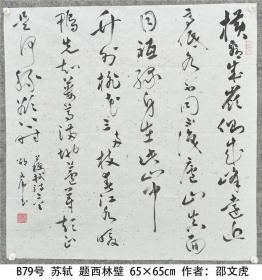 横看成岭侧成峰远近
高低各不同不识庐山真面
目祗缘身在此山中
竹外桃花三两枝春江水暖
鸭先知蒌蒿满地芦芽短正
是河豚欲上时
苏轼诗二首
B79号 苏轼 题西林壁 65×65cm 作者：邵文虎